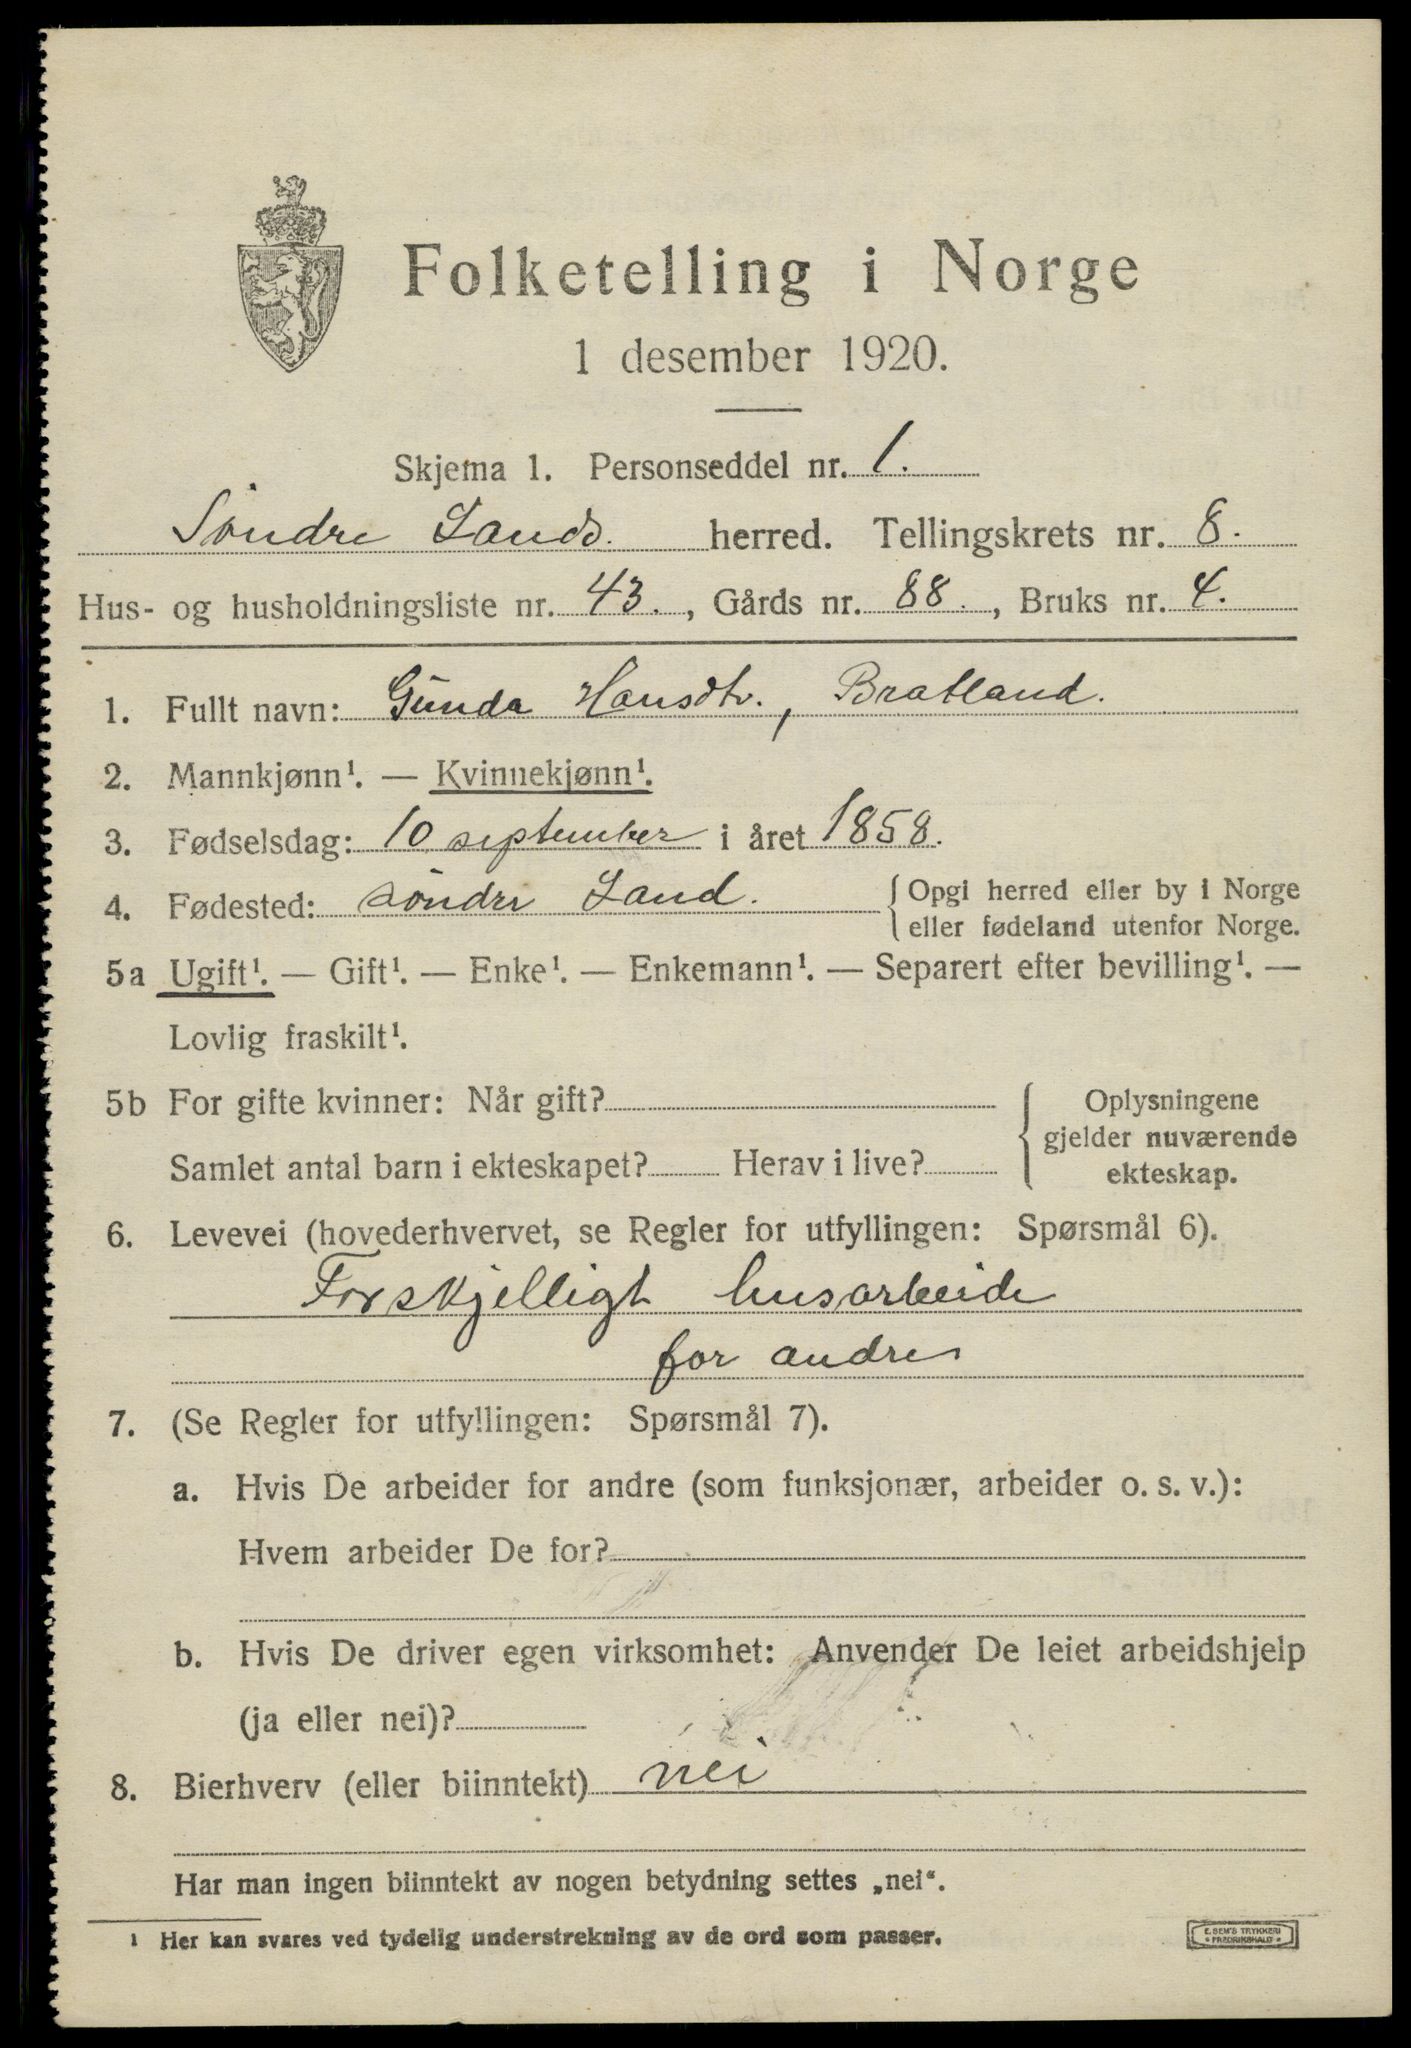 Folketelling i Norge
1 desember 1920.
Skjema 1. Personseddel nr. 1.
Søndre Lands. herred. Tellingskrets nr. 8.
Hus- og husholdningsliste nr. 43., Gårds nr. 88., Bruks nr. 4.
1. Fullt navn: Gunda Hansdtr., Bratland.
2. Mannkjønn¹. — Kvinnekjønn¹.
3. Fødselsdag: 10 september i året 1858.
4. Fødested: Søndre Land. { Opgi herred eller by i Norge
eller fødeland utenfor Norge.
5a Ugift¹. — Gift¹. — Enke¹. — Enkemann¹. — Separert efter bevilling¹. —
Lovlig fraskilt¹.
5b For gifte kvinner: Når gift?
Samlet antal barn i ekteskapet? Herav i live?
{ Oplysningene
gjelder nuværende
ekteskap.
6. Levevei (hovederhvervet, se Regler for utfyllingen: Spørsmål 6).
Forskjelligt husarbeide
for andre
7. (Se Regler for utfyllingen: Spørsmål 7).
a. Hvis De arbeider for andre (som funksjonær, arbeider o. s. v.):
Hvem arbeider De for?
b. Hvis De driver egen virksomhet: Anvender De leiet arbeidshjelp
(ja eller nei)?
8. Bierhverv (eller biinntekt) nei
Har man ingen biinntekt av nogen betydning settes „nei“.
¹ Her kan svares ved tydelig understrekning av de ord som passer.
E. SEM'S TRYKKERI
FREDRIKSHALD